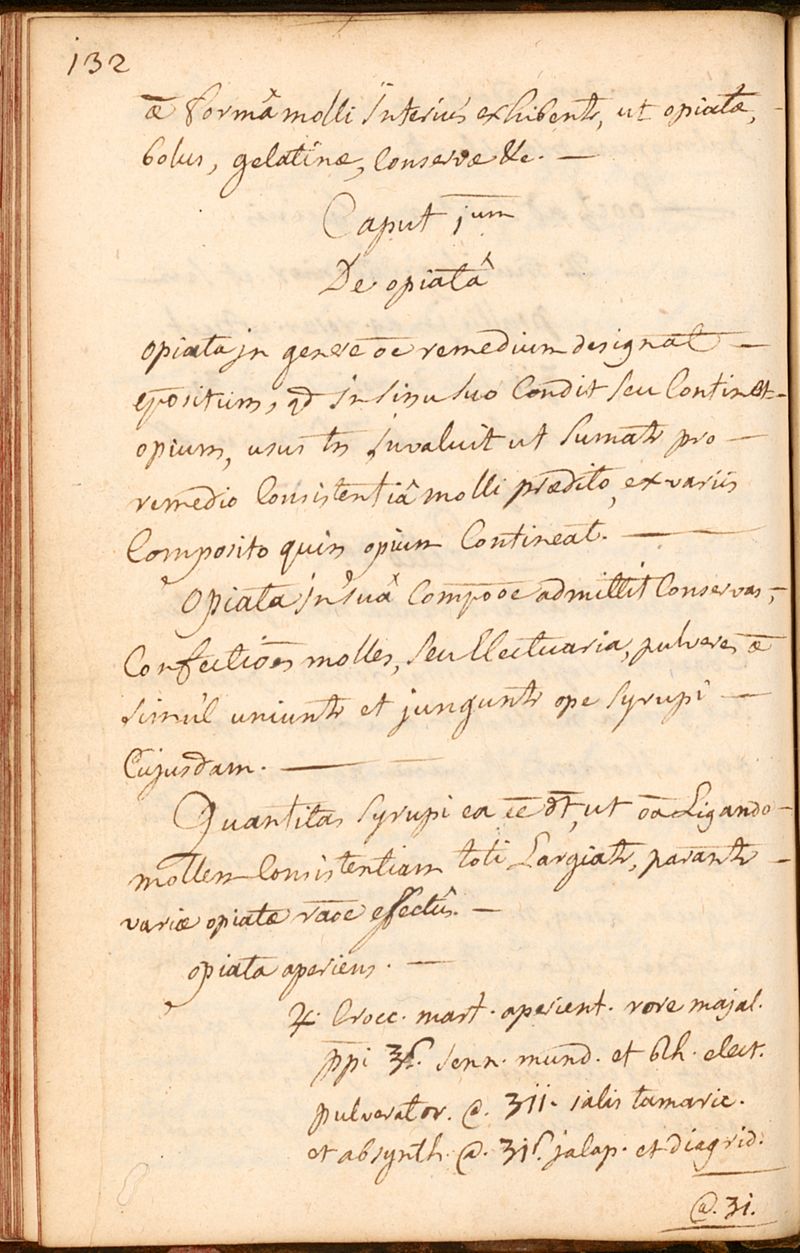 132
æ formâ molli interius exhibentr, ut opiatæ,
bolus, gelatinæ, Conservæ &c. —
Caput jum
De opiatâ
opiata jn genere oē remedium designat —
epositum, qd in sinu suo Condit seu Continet
opium, usus tn jnvaluit ut sumatr pro —
remedio Consistentiâ molli prædito, ex variis
Composito quin opium Contineat. —
Opiata jn suâ Compōoe admittit Conservas,
Confectiōes molles, seu Electuaria, pulveres æ
simul uniuntr et junguntr ope syrupi —
Cujusdam. —
Quantitas syrupi ea ēe dt, ut oā Ligando
mollem Consistentiam toti Largiatr, parantr —
variæ opiatæ raōe effectûs. —
opiata aperiens. —
♃. Crocc. mart. aperient. rore majal.
ppi ʒß. senn. mund. et rh. elect.
pulverator. @. ʒii. salis tamaric.
et absynth. @. ʒiß. jalap. et diagrid.
@. ʒi.